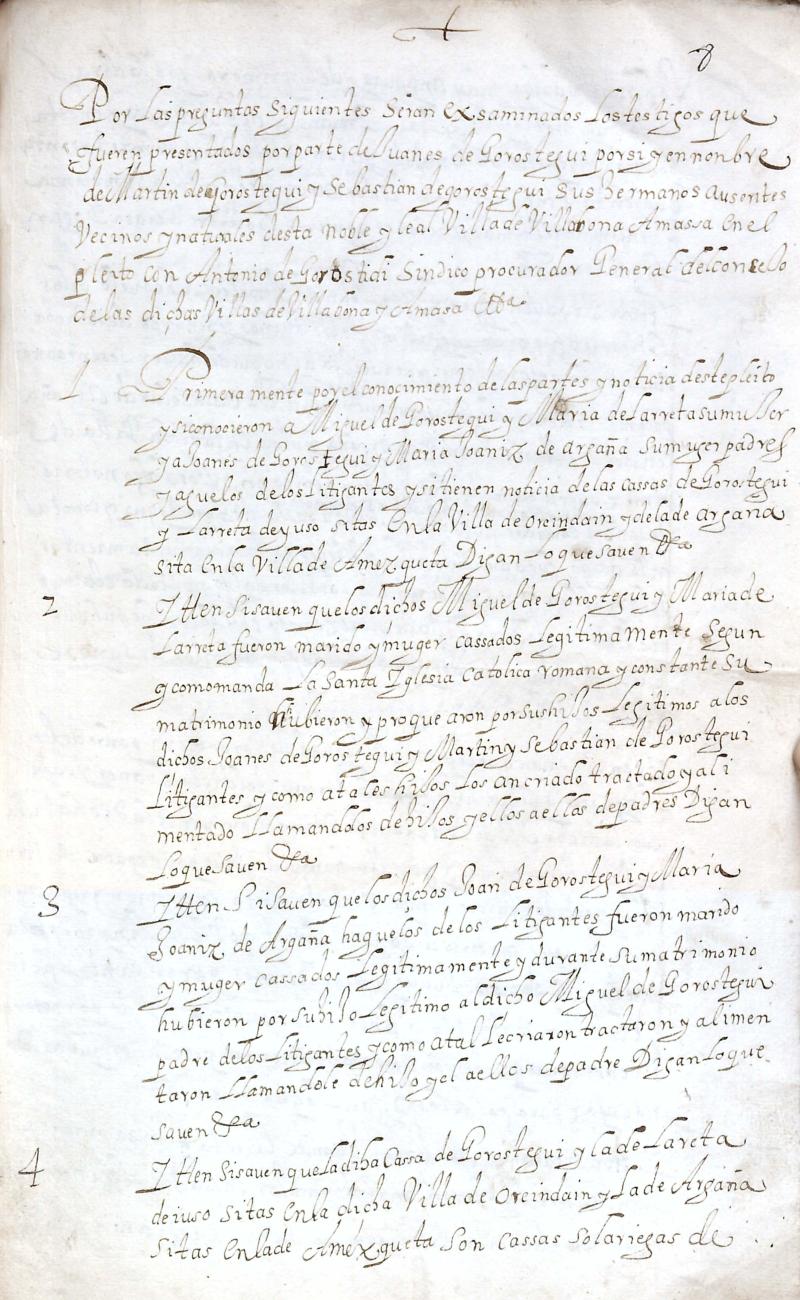 8
Por Las preguntas Siguientes Seran exsaminados Los testigos que
fueren presentados por parte de Juanes de Gorostegui por si y en nonbre
de Martin de Gorostegui y Sebastian de gorostegui Sus hermanos ausentes
Vecinos y naturales desta noble y leal Villa de Villabona Amassa En el
pleito con Antonio de Gorostidi Sindico procurador General del conçeJo
de las dichas Villas de Villabona y Amasa &a
1 Primera mente por el conocimiento de las partes y noticia deste pleito
y si conocieron a Miguel de Gorostegui y Maria de Larreta su muJer
y a Joanes de Gorostegui y Maria Joaniz de argaña su muger padres
y aguelos de los Litigantes y si tienen noticia de las cassas de Gorostegui
y Larreta de yuso sitas En la Villa de Oreindain y de la de argaña
sita En la Villa de Amezqueta Digan Lo que saven &a
2 Itten Si saven que los dichos Miguel de Gorostegui y Maria de
Larreta fueron marido y muger cassados Legitima mente Segun
y como manda La Santa Iglesia catolica romana y constante Su
matrimonio hubieron y proquearon por sus hiJos Legitimos a los
dichos Joanes de Gorostegui y Martin y Sebastian de Gorostegui
Litigantes y como a tales hiJos Los an criado tractado y ali
mentado LLamandolos de hiJos y ellos a ellos de padres Digan
Lo que Saven &a
3 Itten Si saven que los dichos Joan de Gorostegui y Maria
Joaniz de Argaña haguelos de los Litigantes fueron marido
y muger cassados Legitimamente y durante su matrimonio
hubieron por su hiJo Legitimo al dicho Miguel de Gorostegui
padre de los Litigantes y como a tal Le criaron tractaron y alimen
taron LLamandole de hiJo y el a ellos de padre Digan Lo que
saven &a
4 Itten Si saven que La diha Cassa de Gorostegui y la de Lareta
de iuso sitas En la dicha Villa de Oreindain y La de Argaña
sitas En la de Amézqueta son cassas solariegas de